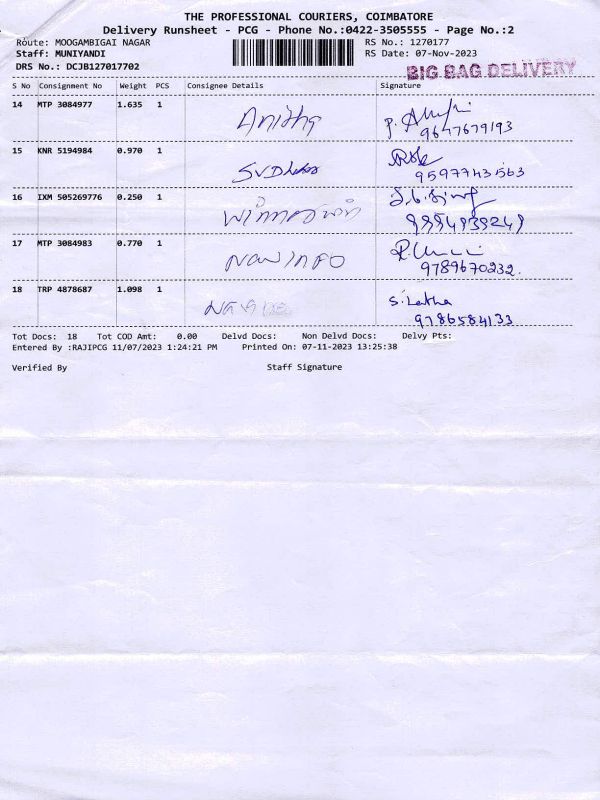 THE PROFESSIONAL COURIERS, COIMBATORE
Delivery Runsheet - PCG - Phone No.:0422-3505555 - Page No.:2
Route: MOOGAMBIGAI NAGAR RS No.: 1270177
Staff: MUNIYANDI RS Date: 07-Nov-2023
DRS No.: DCJB127017702 BIG BAG DELIVERY
S No Consignment No Weight PCS Consignee Details Signature
14 MTP 3084977 1.635 1 Anitha P.
9647679193
15 KNR 5194984 0.970 1
9597743563
16 IXM 505269776 0.250 1
9994939249
17 MTP 3084983 0.770 1 NOW INFO
9789670232.
18 TRP 4878687 1.098 1 S. Latha
9786584133
Tot Docs: 18 Tot COD Amt: 0.00 Delvd Docs: Non Delvd Docs: Delvy Pts:
Entered By :RAJIPCG 11/07/2023 1:24:21 PM Printed On: 07-11-2023 13:25:38
Verified By Staff Signature